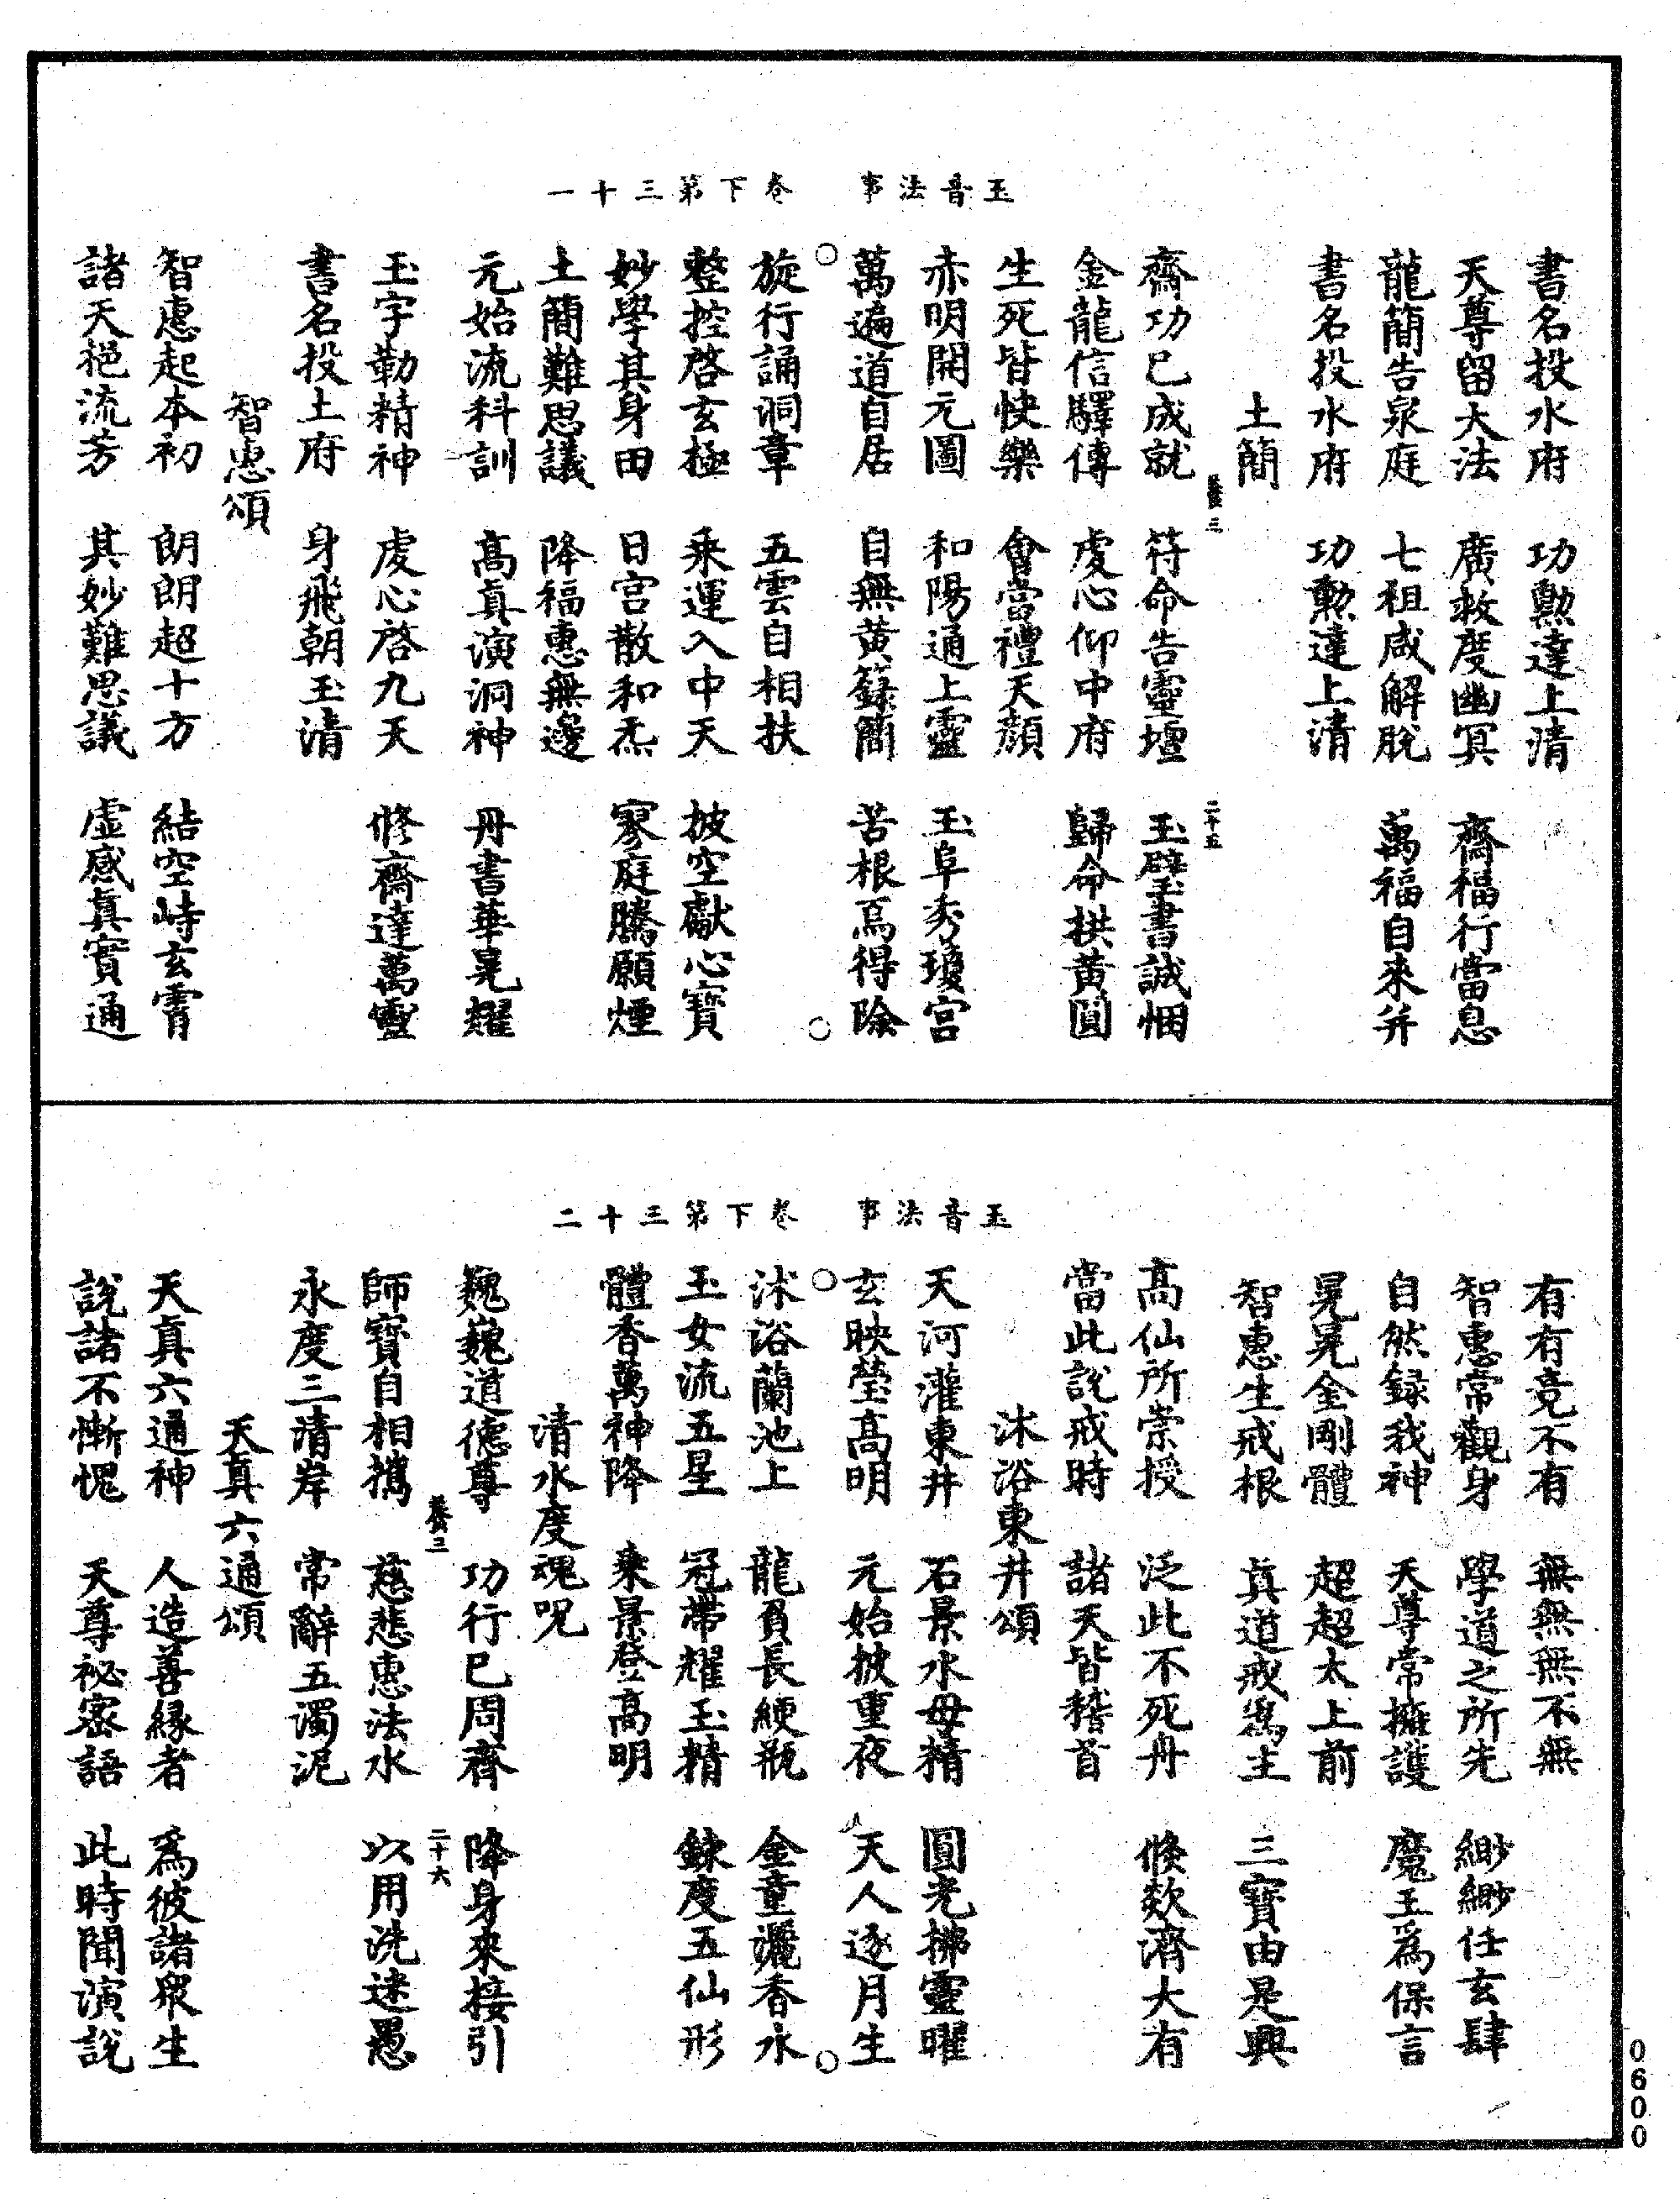 玉音法事　卷下第三十一
書名投水府　功勲達上清
天尊留大法　廣救度幽冥　齋福行當息
龍簡告泉庭　七祖咸解脫　萬福自來并
書名投水府　功勲達上清
土簡
三　二十五
齋功已成就　符命告靈壇　玉璧書誠悃
金龍信驛傳　虔心仰中府　歸命拱黃圓
生死皆快樂　會當禮天顏
赤明開元圖　和陽通上靈　玉阜秀瓊宮
萬遍道自居　自無黃籙簡　苦根焉得除
○　○
旋行誦洞章　五雲自相扶
整控啓玄極　乘運入中天　披空獻心寶
妙學其身田　日宮散和炁　寥庭騰願煙
土簡難思議　降福惠無邊
元始流科訓　高真演洞神　丹書華晃耀
玉字勒精神　虔心啓九天　修齋達萬靈
書名投土府　身飛朝玉清
智惠頌
智慮起本初　朗朗超十方　結空峙玄霄
諸天挹流芳　其妙難思議　虛感真實通
玉音法事　卷下第三十二
有有竟不有　無無無不無
智惠常觀身　學道之所先　緲緲任玄肆
自然録我神　天尊常擁護　魔王爲保言
晃晃金剛體　超超太上前
智惠生戒根　真道戒爲主　三寶由是興
高仙所崇授　泛此不死舟　倏欻濟大有
當此說戒時　諸天皆稽首
沐浴東井頌
天河灌東井　石景水母精　圓光拂靈曜
玄映瑩高明　元始披重夜　天人逐月生
○　○
沐浴蘭池上　龍負長綆瓶　金童灑香水
玉女流五星　冠帶耀玉精　錬度五仙形
體香萬神降　乘景登高明
清水度魂呪
巍巍道德尊　功行已周齊　降身來接引
養三　二十六
師寶自相攜　慈悲惠法水　以用洗迷愚
永度三清岸　常辭五濁泥
天真六通頌
天真六通神　人造善縁者　爲彼諸眾生
說諸不慚愧　天尊祕密語　此時聞演說
0600